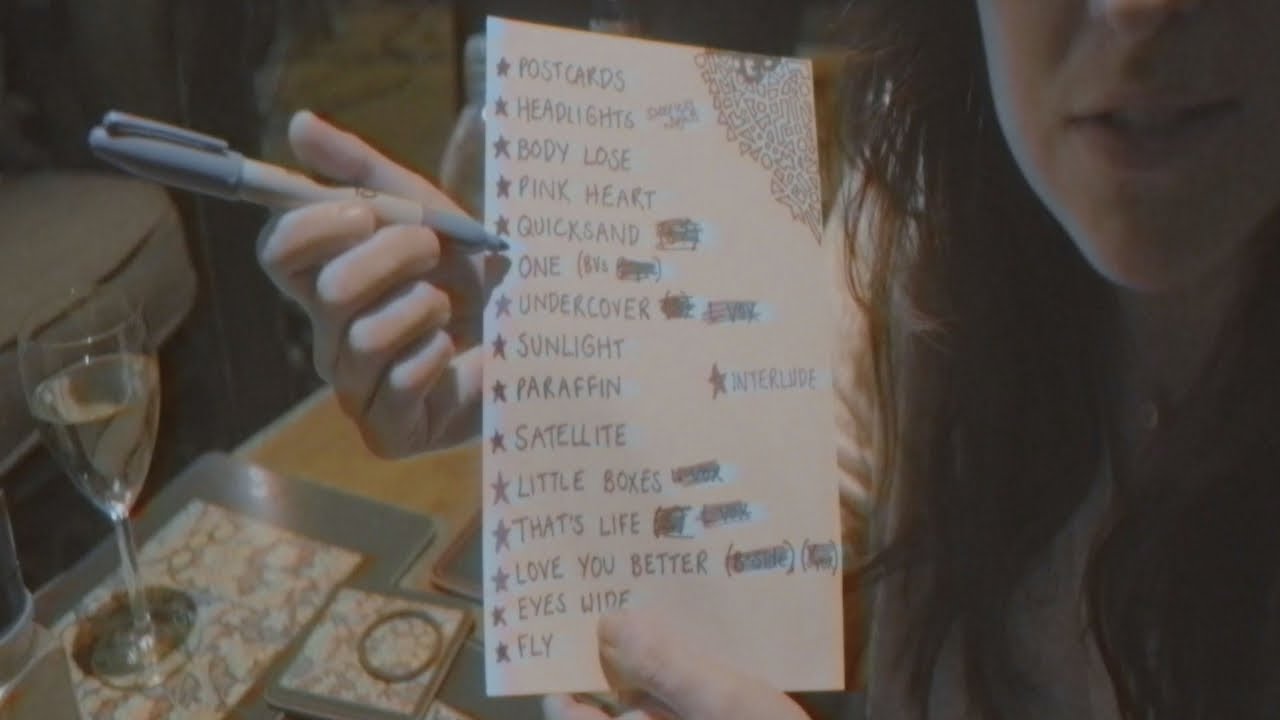 ★ POSTCARDS
★ HEADLIGHTS
★ BODY LOSE
★ PINK HEART
★ QUICKSAND
ONE (BVs
★ UNDERCOVER VOX
★ SUNLIGHT
★ PARAFFIN ★ INTERLUDE
★ SATELLITE
★ LITTLE BOXES
★ THAT'S LIFE
★ LOVE YOU BETTER (B-SIDE)
★ EYES WIDE
★ FLY